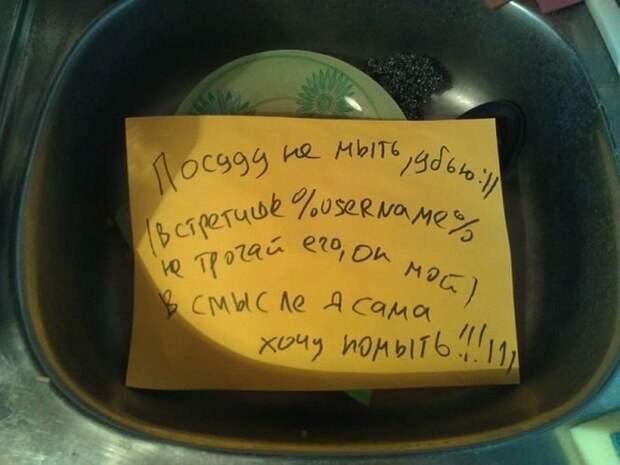 Посуду не мыть, убью:))
(встретишь %username%
не трогай его, он мой)
В смысле я сама
хочу помыть!!!111